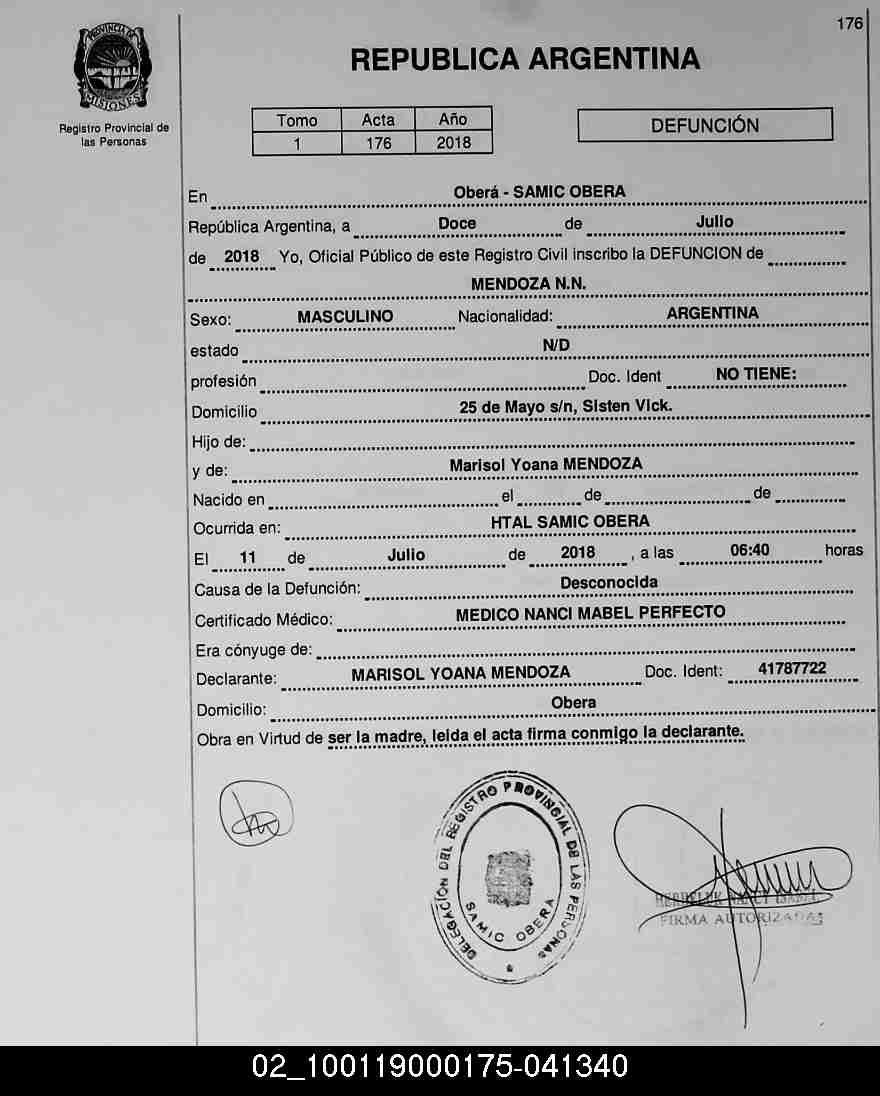 176
PROVINCIA DE
MISIONES
Registro Provincial de
las Personas
REPUBLICA ARGENTINA
Tomo Acta Año
1 176 2018
DEFUNCIÓN
En Oberá - SAMIC OBERA
República Argentina, a Doce de Julio
de 2018 Yo, Oficial Público de este Registro Civil inscribo la DEFUNCION de
MENDOZA N.N.
Sexo: MASCULINO Nacionalidad: ARGENTINA
estado N/D
profesión Doc. Ident NO TIENE:
Domicilio 25 de Mayo s/n, Sisten Vick.
Hijo de:
y de: Marisol Yoana MENDOZA
Nacido en el de de
Ocurrida en: HTAL SAMIC OBERA
El 11 de Julio de 2018 , a las 06:40 horas
Causa de la Defunción: Desconocida
Certificado Médico: MEDICO NANCI MABEL PERFECTO
Era cónyuge de:
Declarante: MARISOL YOANA MENDOZA Doc. Ident: 41787722
Domicilio: Obera
Obra en Virtud de ser la madre, leida el acta firma conmigo la declarante.
DELEGACIÓN DEL REGISTRO PROVINCIAL DE LAS PERSONAS
SAMIC OBERA
FIRMA AUTORIZADA
02_100119000175-041340